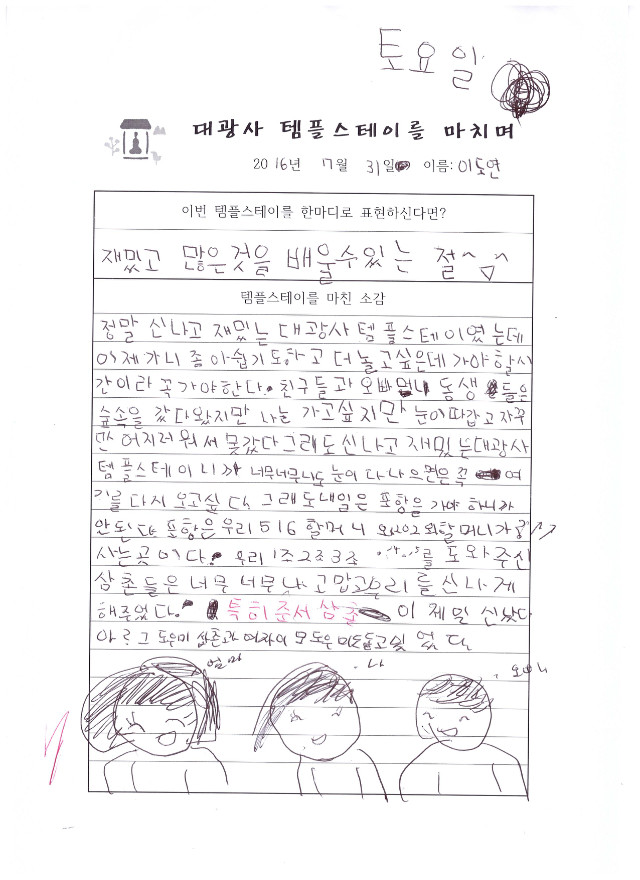 토요일
대광사 템플스테이를 마치며
2016년 7월 31일 이름: 이도연
이번 템플스테이를 한마디로 표현하신다면?
재밌고 많은것을 배울수있는 절^^
템플스테이를 마친 소감
정말 신나고 재밌는 대광사 템플스테이였는데
이제가니 좀 아쉽기도하고 더놀고싶은데 가야할시
간이라 꼭가야한다. 친구들과 오빠 동생들은
숲속을 갔다왔지만 나는 가고싶지만 눈이따갑고자꾸
만 어지러워서 못갔다그래도신나고 재밌는대광사
템플스테이니까 너무너무 눈이 다나으면은꼭 여
기를 다시 오고싶다. 그래도내일은 포항을 가야 하니까
안된다 포항은우리516할머니 할머니가
사는곳이다. 우리 1조2조3조 를 도와주신
삼촌들은 너무 너무 고맙고우리를신나게
해주었다. 특히준서삼촌 이 제일 신났다
도우미 삼촌과
엄마
나
오빠